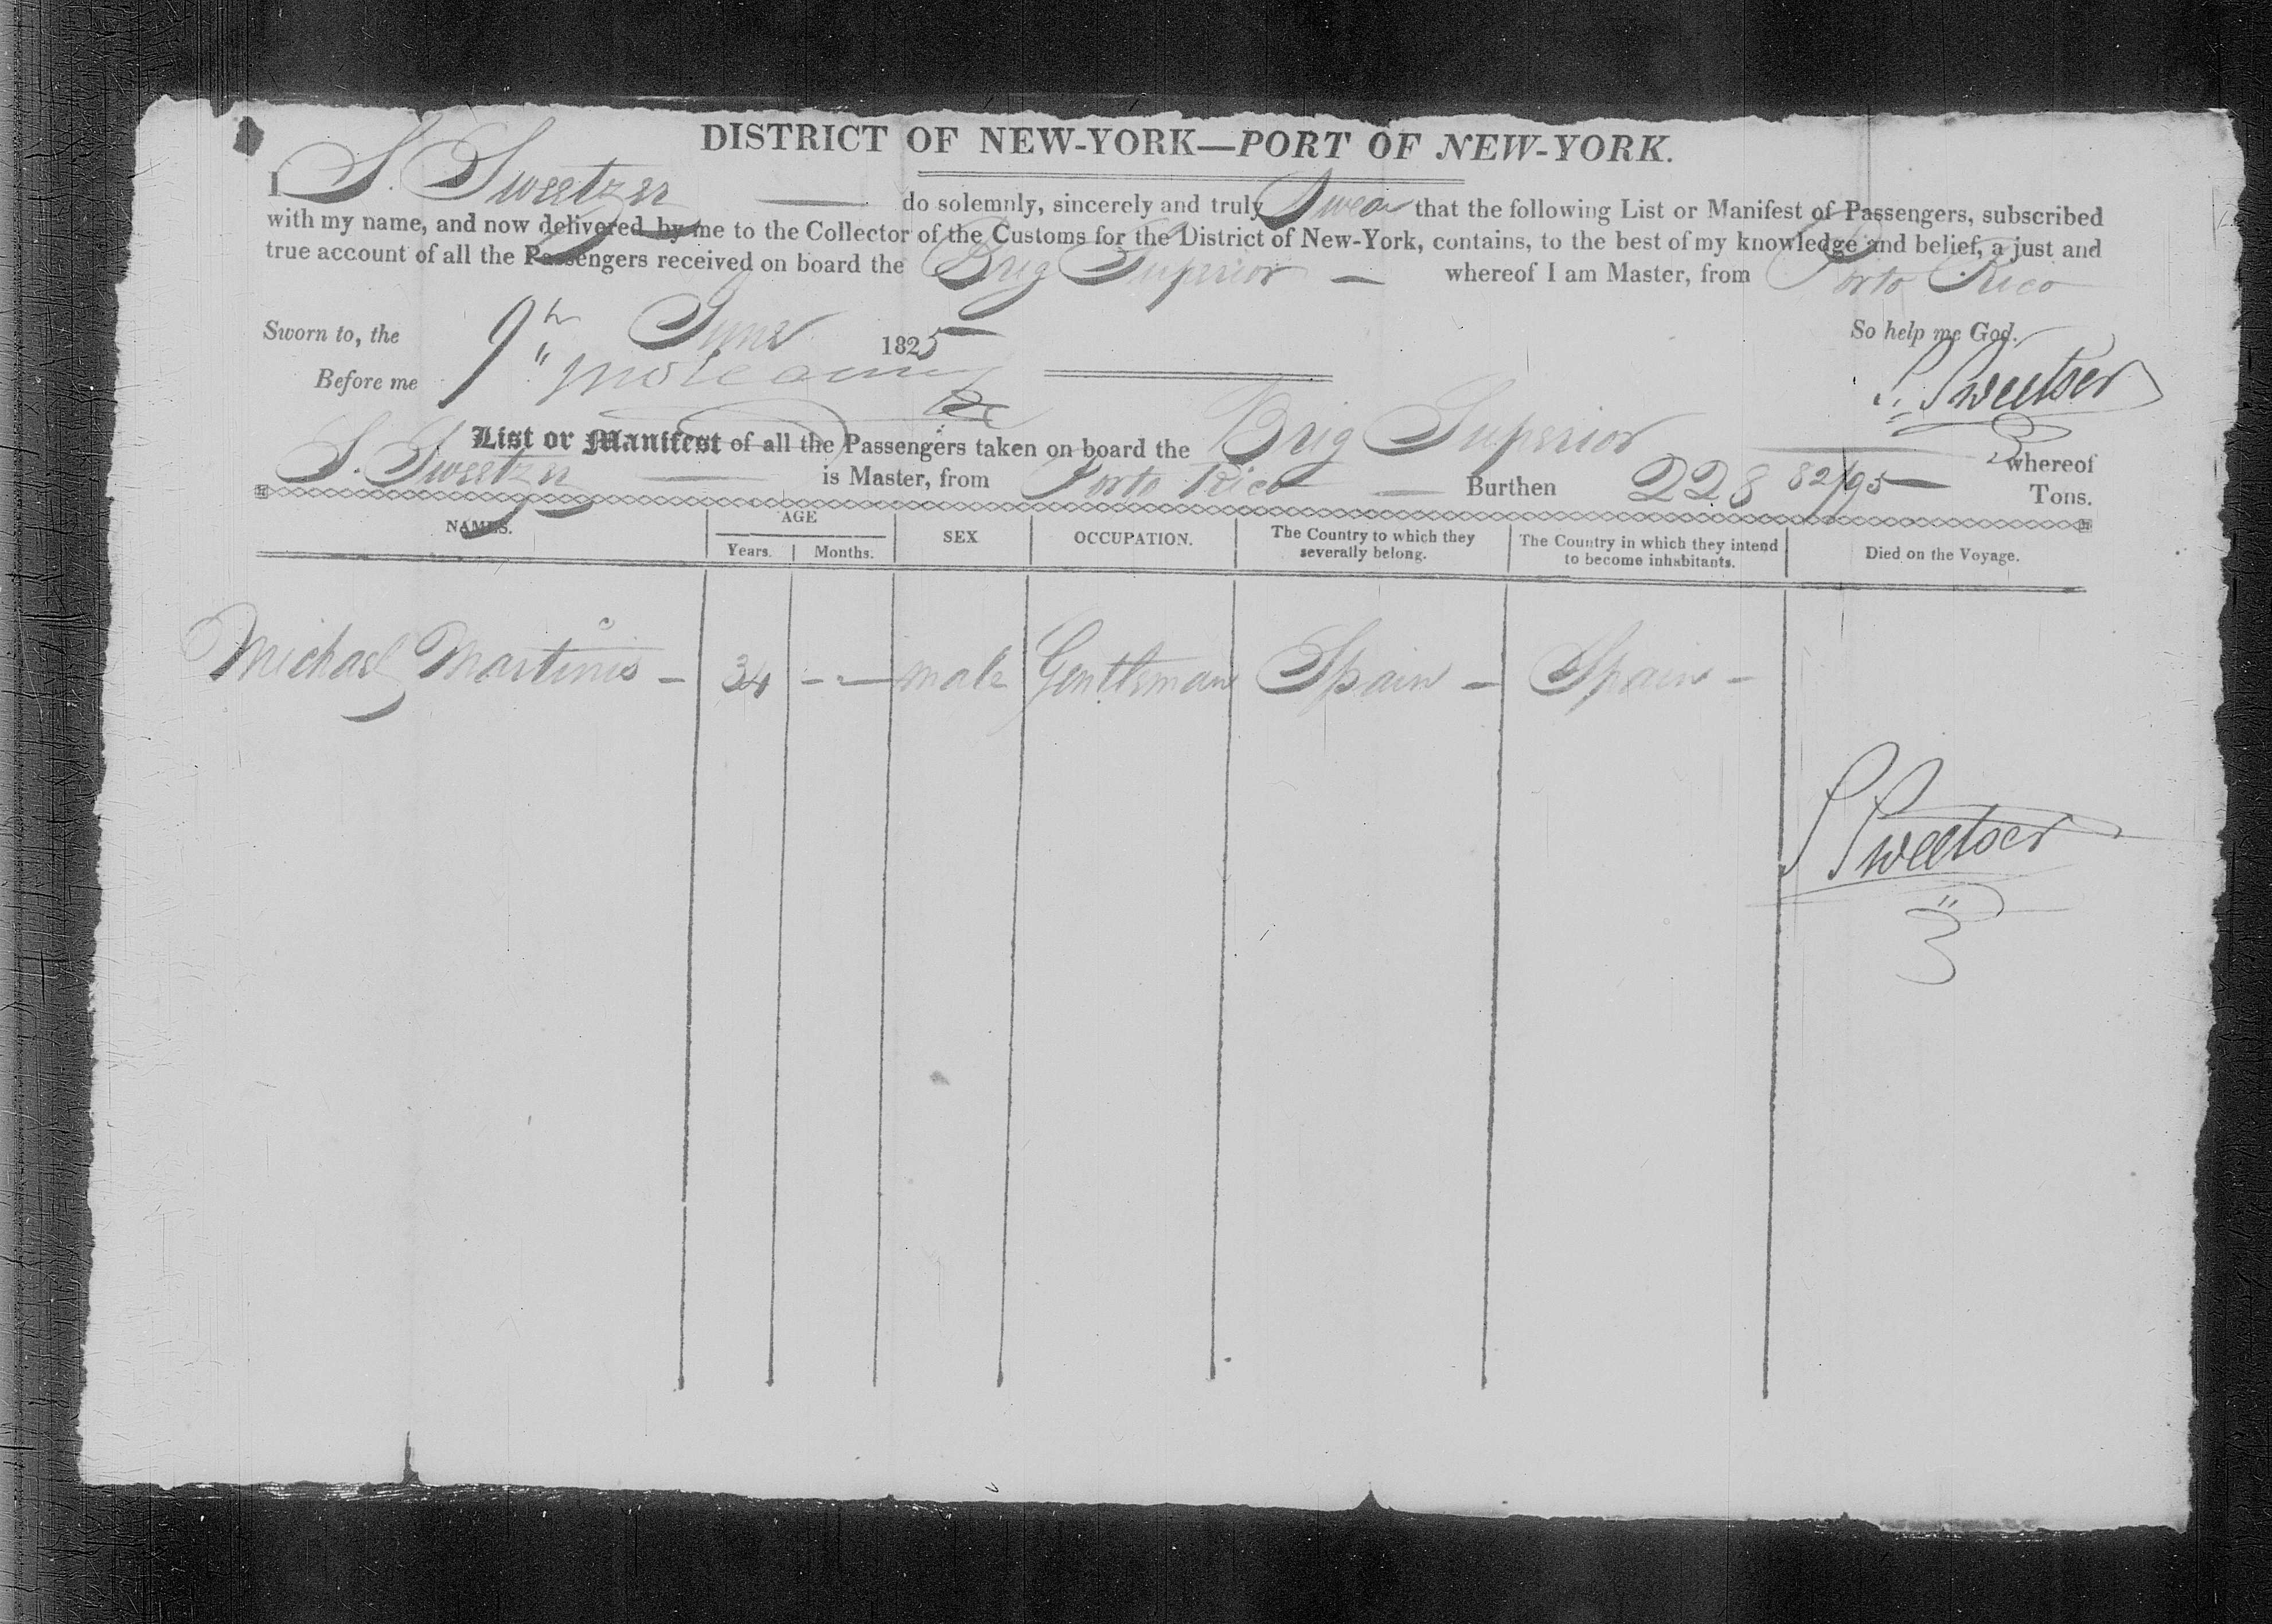 DISTRICT OF NEW-YORK—PORT OF NEW-YORK.
I S. Sweetzer do solemnly, sincerely and truly Swear that the following List or Manifest of Passengers, subscribed
with my name, and now delivered by me to the Collector of the Customs for the District of New-York, contains, to the best of my knowledge and belief, a just and
true account of all the Passengers received on board the Brig Superior — whereof I am Master, from Porto Rico
Sworn to, the 9th June 1825 So help me God.
Before me S. Sweetser
List or Manifest of all the Passengers taken on board the Brig Superior whereof
S. Sweetzer is Master, from Porto Rico — Burthen 228 82/95 Tons.
NAMES. AGE Years. Months. SEX OCCUPATION. The Country to which they severally belong. The Country in which they intend to become inhabitants. Died on the Voyage.
Michael Martinis — 34 - — male Gentleman Spain — Spain —
S Sweetser